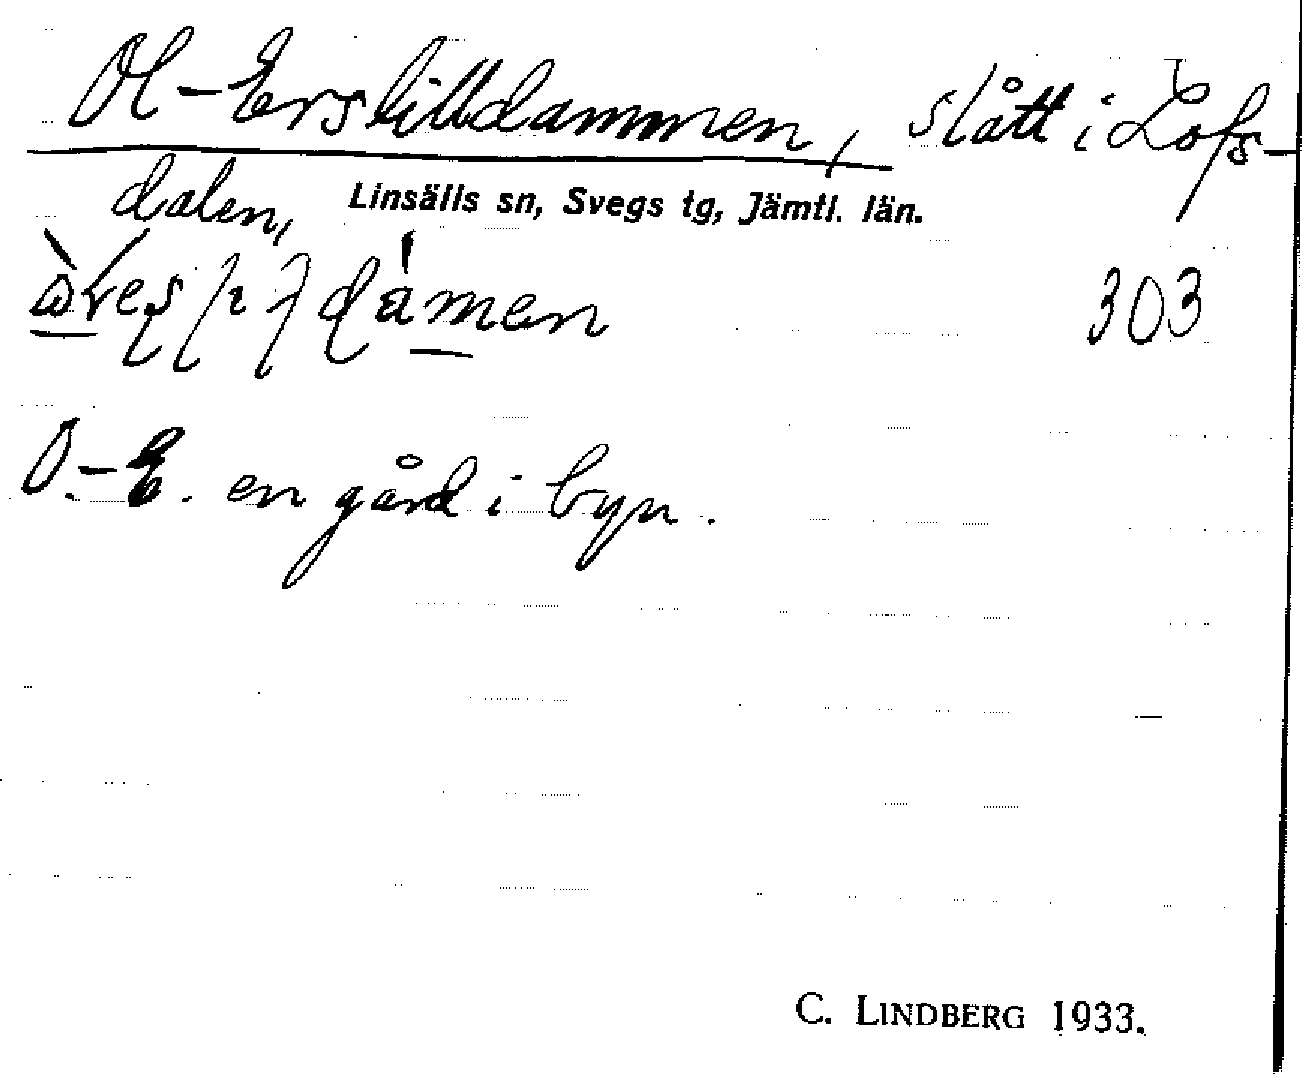 Ol-Erslilldammen, slått i Lofs-
dalen, Linsälls sn, Svegs tg, Jämtl. län.
303
O.-E. en gård i byn.
C. LINDBERG 1933.